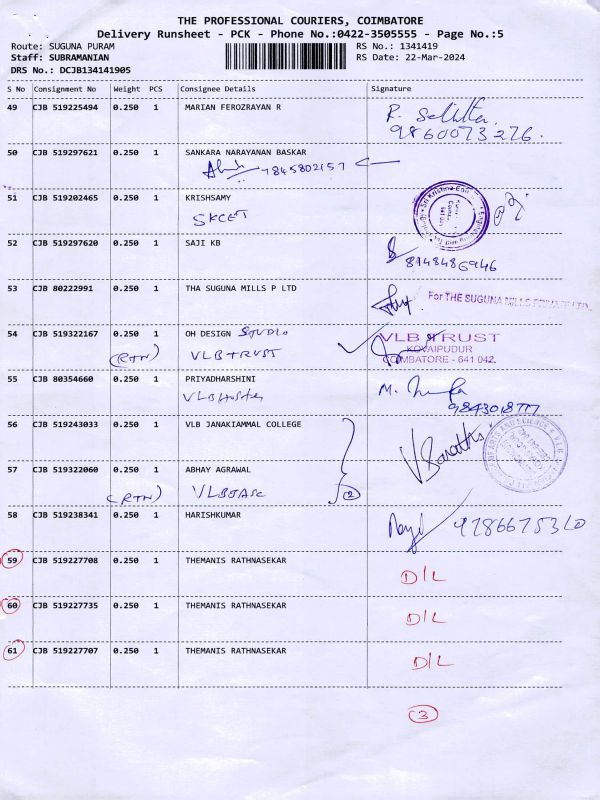 THE PROFESSIONAL COURIERS, COIMBATORE
Delivery Runsheet - PCK - Phone No.:0422-3505555 - Page No.:5
Route: SUGUNA PURAM
RS No.: 1341419
Staff: SUBRAMANIAN
RS Date: 22-Mar-2024
DRS No.: DCJB134141905
S No Consignment No Weight PCS Consignee Details Signature
49 CJB 519225494 0.250 1 MARIAN FEROZRAYAN R
9860073276.
50 CJB 519297621 0.250 1 SANKARA NARAYANAN BASKAR
7845802157
51 CJB 519202465 0.250 1 KRISHSAMY
SKCET
52 CJB 519297620 0.250 1 SAJI KB
8148486946
53 CJB 80222991 0.250 1 THA SUGUNA MILLS P LTD
For THE SUGUNA MILLS PRIVATE LTD.
54 CJB 519322167 0.250 1 OH DESIGN STUDIO
(RTN) VLB TRUST
VLB TRUST
KOVAIPUDUR
COIMBATORE - 641 042.
55 CJB 80354660 0.250 1 PRIYADHARSHINI
VLB Hostel
56 CJB 519243033 0.250 1 VLB JANAKIAMMAL COLLEGE
V Barathi
57 CJB 519322060 0.250 1 ABHAY AGRAWAL
(RTN) VLBJASC
2
58 CJB 519238341 0.250 1 HARISHKUMAR
9786675310
59 CJB 519227708 0.250 1 THEMANIS RATHNASEKAR
D/L
60 CJB 519227735 0.250 1 THEMANIS RATHNASEKAR
D/L
61 CJB 519227707 0.250 1 THEMANIS RATHNASEKAR
D/L
3